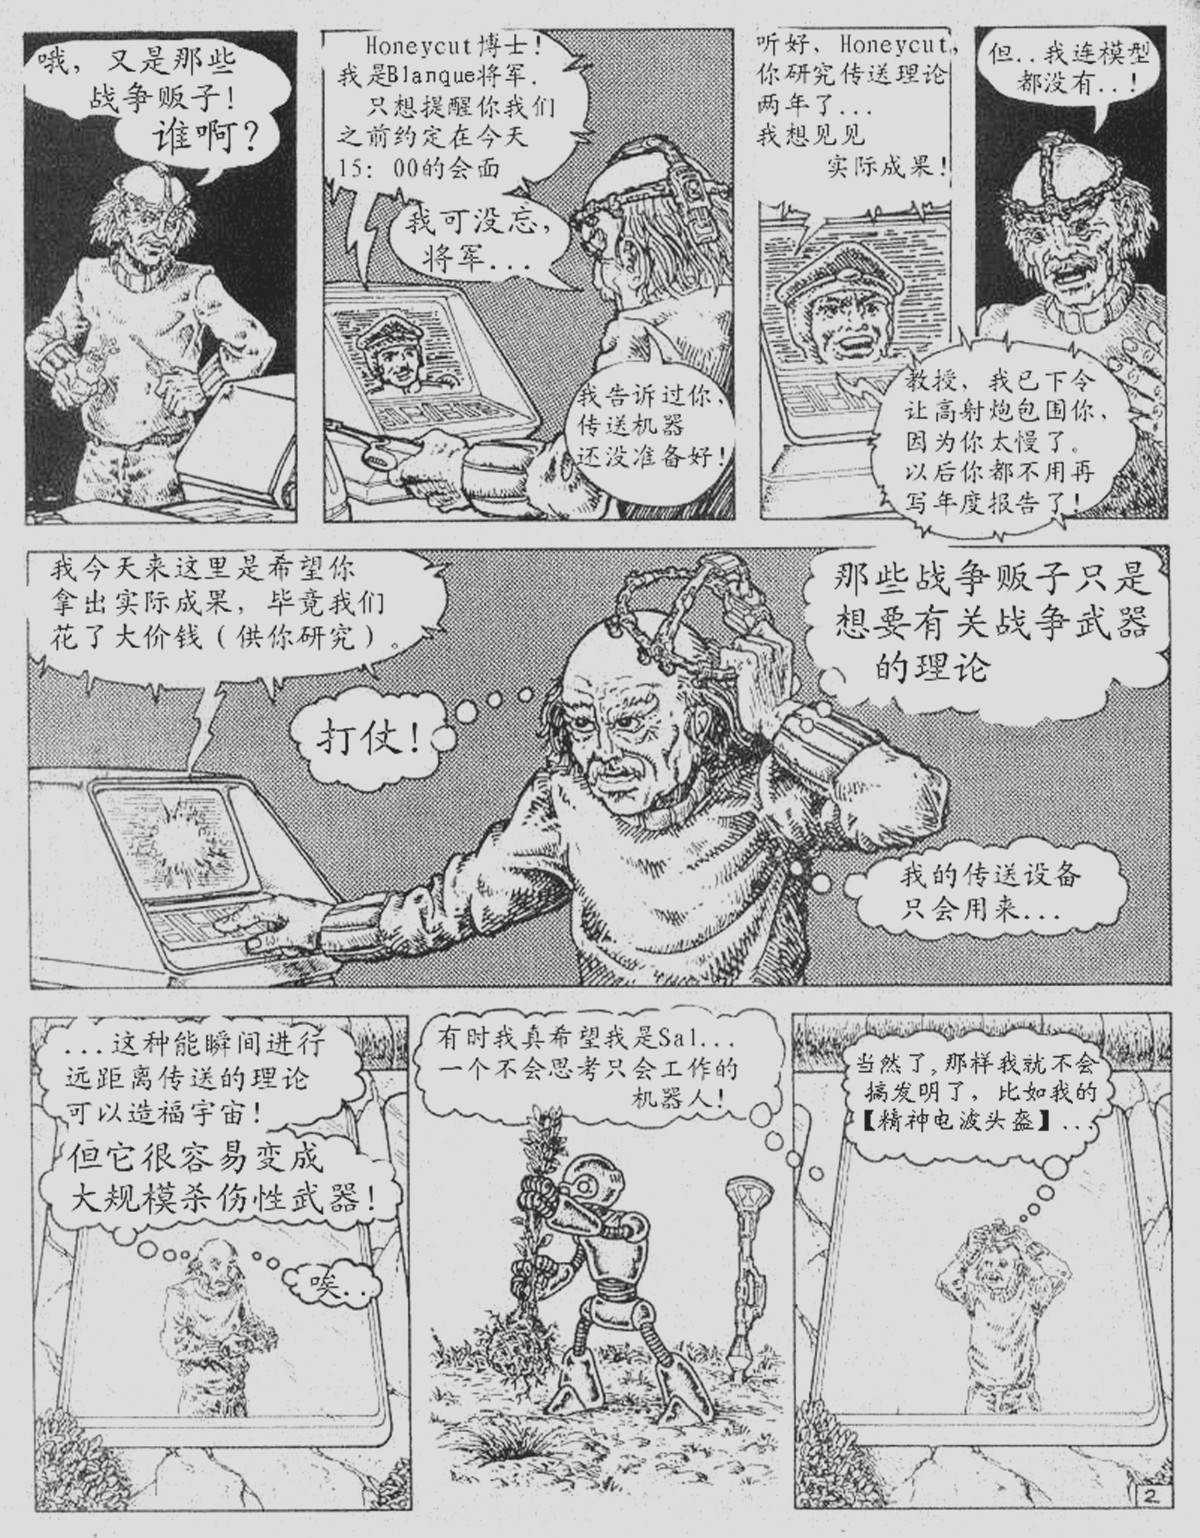 哦，又是那些
战争贩子！
谁啊？
Honeycut博士！
我是Blanque将军.
只想提醒你我们
之前约定在今天
15：00的会面
我可没忘，
将军...
我告诉过你，
传送机器
还没准备好！
听好，Honeycut，
你研究传送理论
两年了...
我想见见
实际成果！
但..我连模型
都没有..！
教授，我已下令
让高射炮包围你，
因为你太慢了。
以后你都不用再
写年度报告了！
我今天来这里是希望你
拿出实际成果，毕竟我们
花了大价钱（供你研究）。
打仗！
那些战争贩子只是
想要有关战争武器
的理论
我的传送设备
只会用来...
...这种能瞬间进行
远距离传送的理论
可以造福宇宙！
但它很容易变成
大规模杀伤性武器！
唉..
有时我真希望我是Sal...
一个不会思考只会工作的
机器人！
当然了,那样我就不会
搞发明了，比如我的
【精神电波头盔】...
2